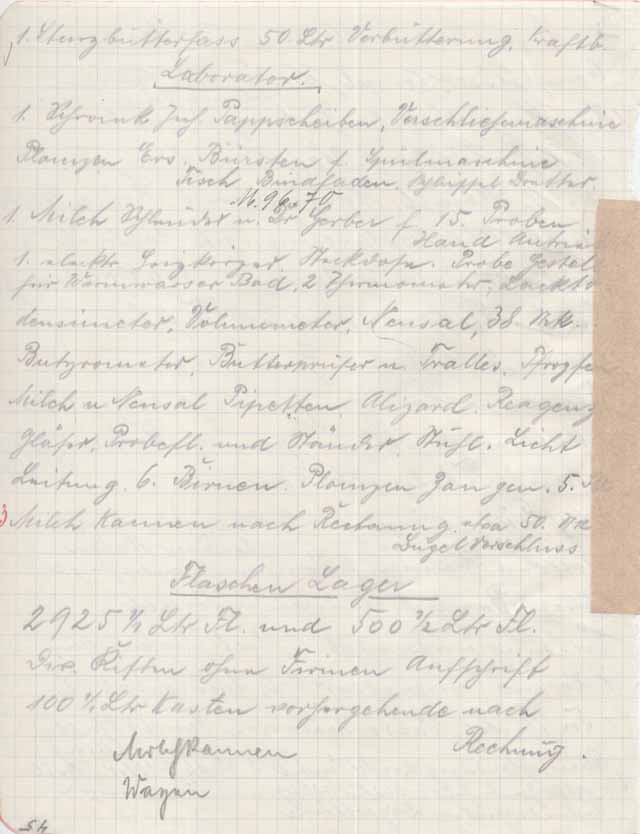 1. Sturzbutterfass 50 Ltr Verbutterung, Kraftb.
Laborator.
1. Schrank Inh Pappscheiben, Verschliessmaschine
Plomben Ers. Bürsten f. Spülmaschine
Tisch Bindfaden,
M. 9
1. Milch Schleuder n. Dr Gerber f. 15. Proben
Hand Antrieb
1. elektr Steckdose. Probe Gestell
für Warmwasser Bad, 2 Thermometer, Lackto
densimeter, Volumometer, Neusal, 38 Stck.
Butyrometer, Butterprüfer n Tralles,
Milch u Neusal Pipetten, Alizard, Reagenz
Gläser, Probefl. und Ständer, Stuhl. Licht
Leitung. 6. Birnen. Plomben Zangen. 5.
3 Milch Kannen nach Rechnung etwa 50.
Bügel Verschluss
Flaschen Lager
2925 1/1 Ltr Fl. und 500 1/2 Ltr Fl.
Div. Kisten ohne Firmen Aufschrift
100 1/1 Ltr Kasten vorhergehende nach
Rechnung.
Milchkannen
Wagen
54